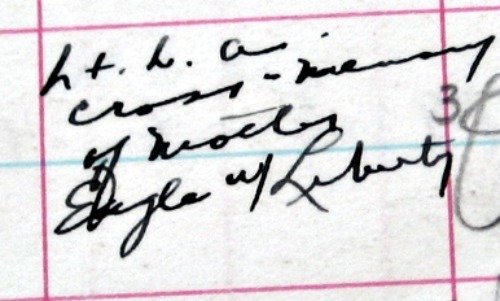 Lt. L. a
cross - memory
of mother
Eagle w/ Liberty
3